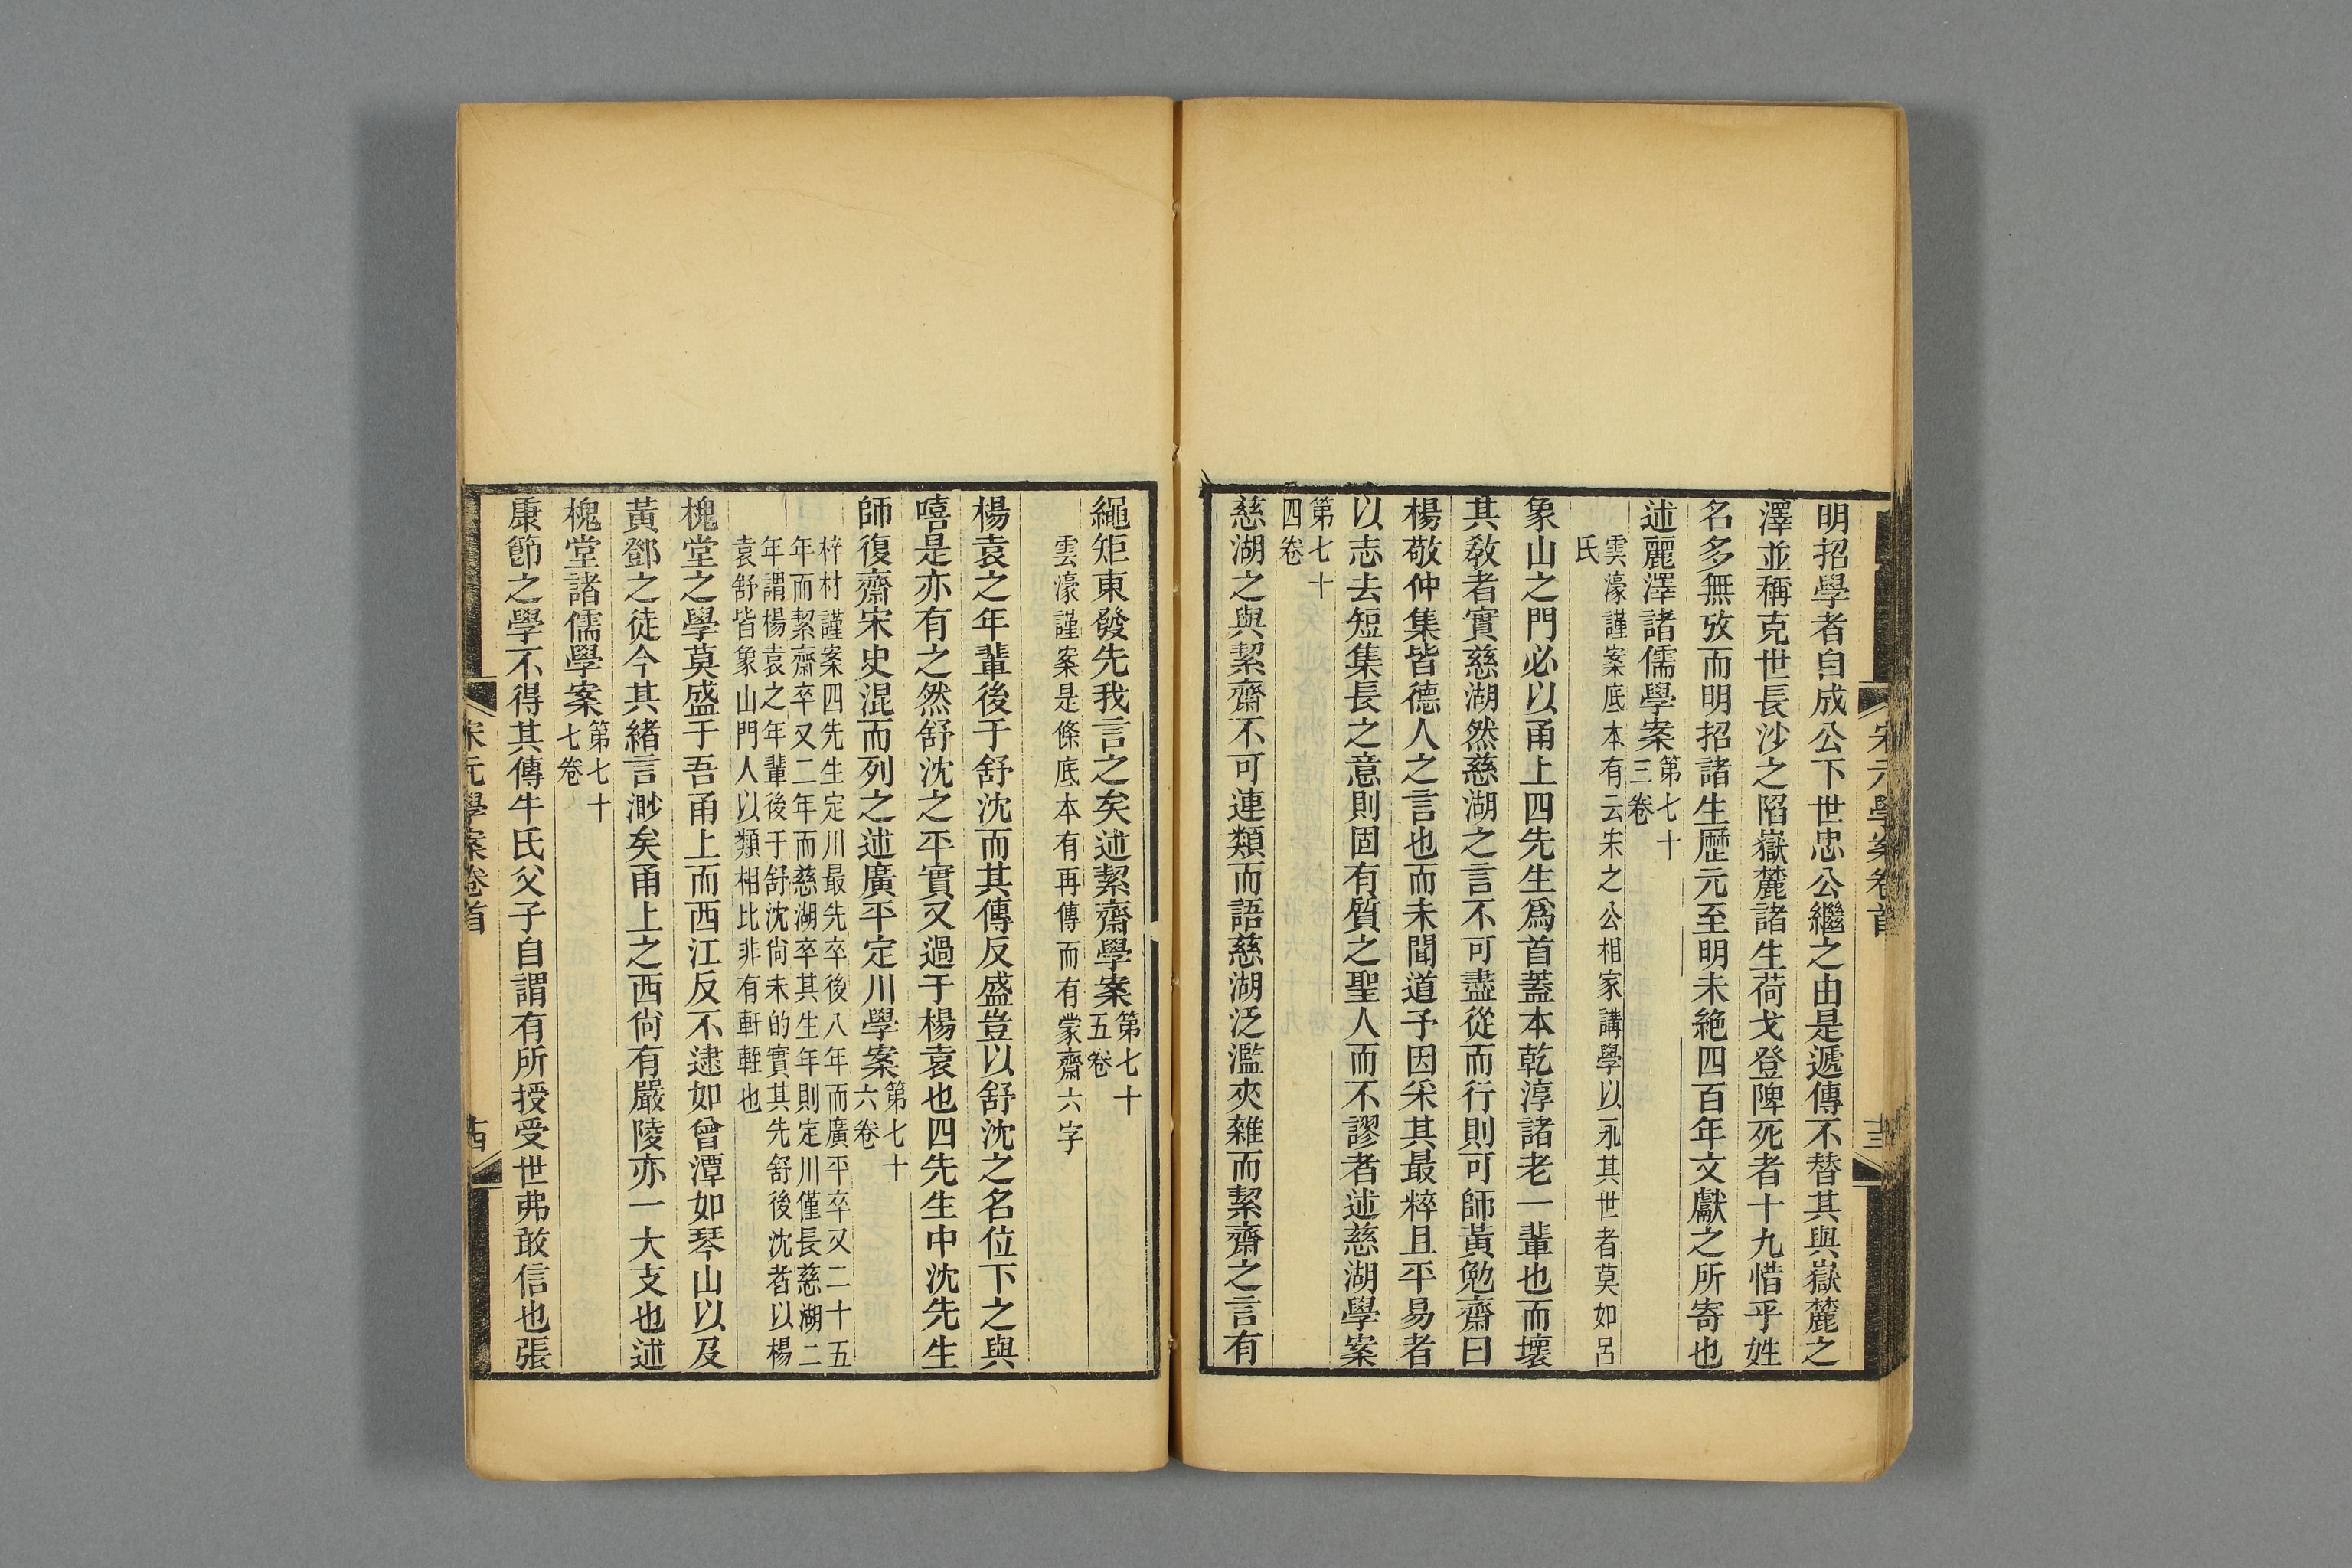 明招學者自成公下世忠公繼之由是遞傳不替其與嶽麓之
澤並稱克世長沙之陷嶽麓諸生荷戈登陴死者十九惜乎姓
名多無攷而明招諸生歷元至明未絶四百年文獻之所寄也
述麗澤諸儒學案第七十
三卷
雲濠謹案底本有云宋之公相家講學以永其世者莫如呂
氏
象山之門必以甬上四先生爲首蓋本乾淳諸老一輩也而壞
其敎者實慈湖然慈湖之言不可盡從而行則可師黃勉齋曰
楊敬仲集皆德人之言也而未聞道予因采其最粹且平易者
以志去短集長之意則固有質之聖人而不謬者述慈湖學案
第七十
四卷
慈湖之與絜齋不可連類而語慈湖泛濫夾雜而絜齋之言有
宋元學案卷首
十三
繩矩東發先我言之矣述絜齋學案第七十
五卷
雲濠謹案是條底本有再傳而有蒙齋六字
楊袁之年輩後于舒沈而其傳反盛豈以舒沈之名位下之與
嘻是亦有之然舒沈之平實又過于楊袁也四先生中沈先生
師復齋宋史混而列之述廣平定川學案第七十
六卷
梓材謹案四先生定川最先卒後八年而廣平卒又二十五
年而絜齋卒又二年而慈湖卒其生年則定川僅長慈湖二
年謂楊袁之年輩後于舒沈尙未的實其先舒後沈者以楊
袁舒皆象山門人以類相比非有軒輊也
槐堂之學莫盛于吾甬上而西江反不逮如曾潭如琴山以及
黃鄧之徒今其緒言渺矣甬上之西尙有嚴陵亦一大支也述
槐堂諸儒學案第七十
七卷
康節之學不得其傳牛氏父子自謂有所授受世弗敢信也張
宋元學案卷首
十四